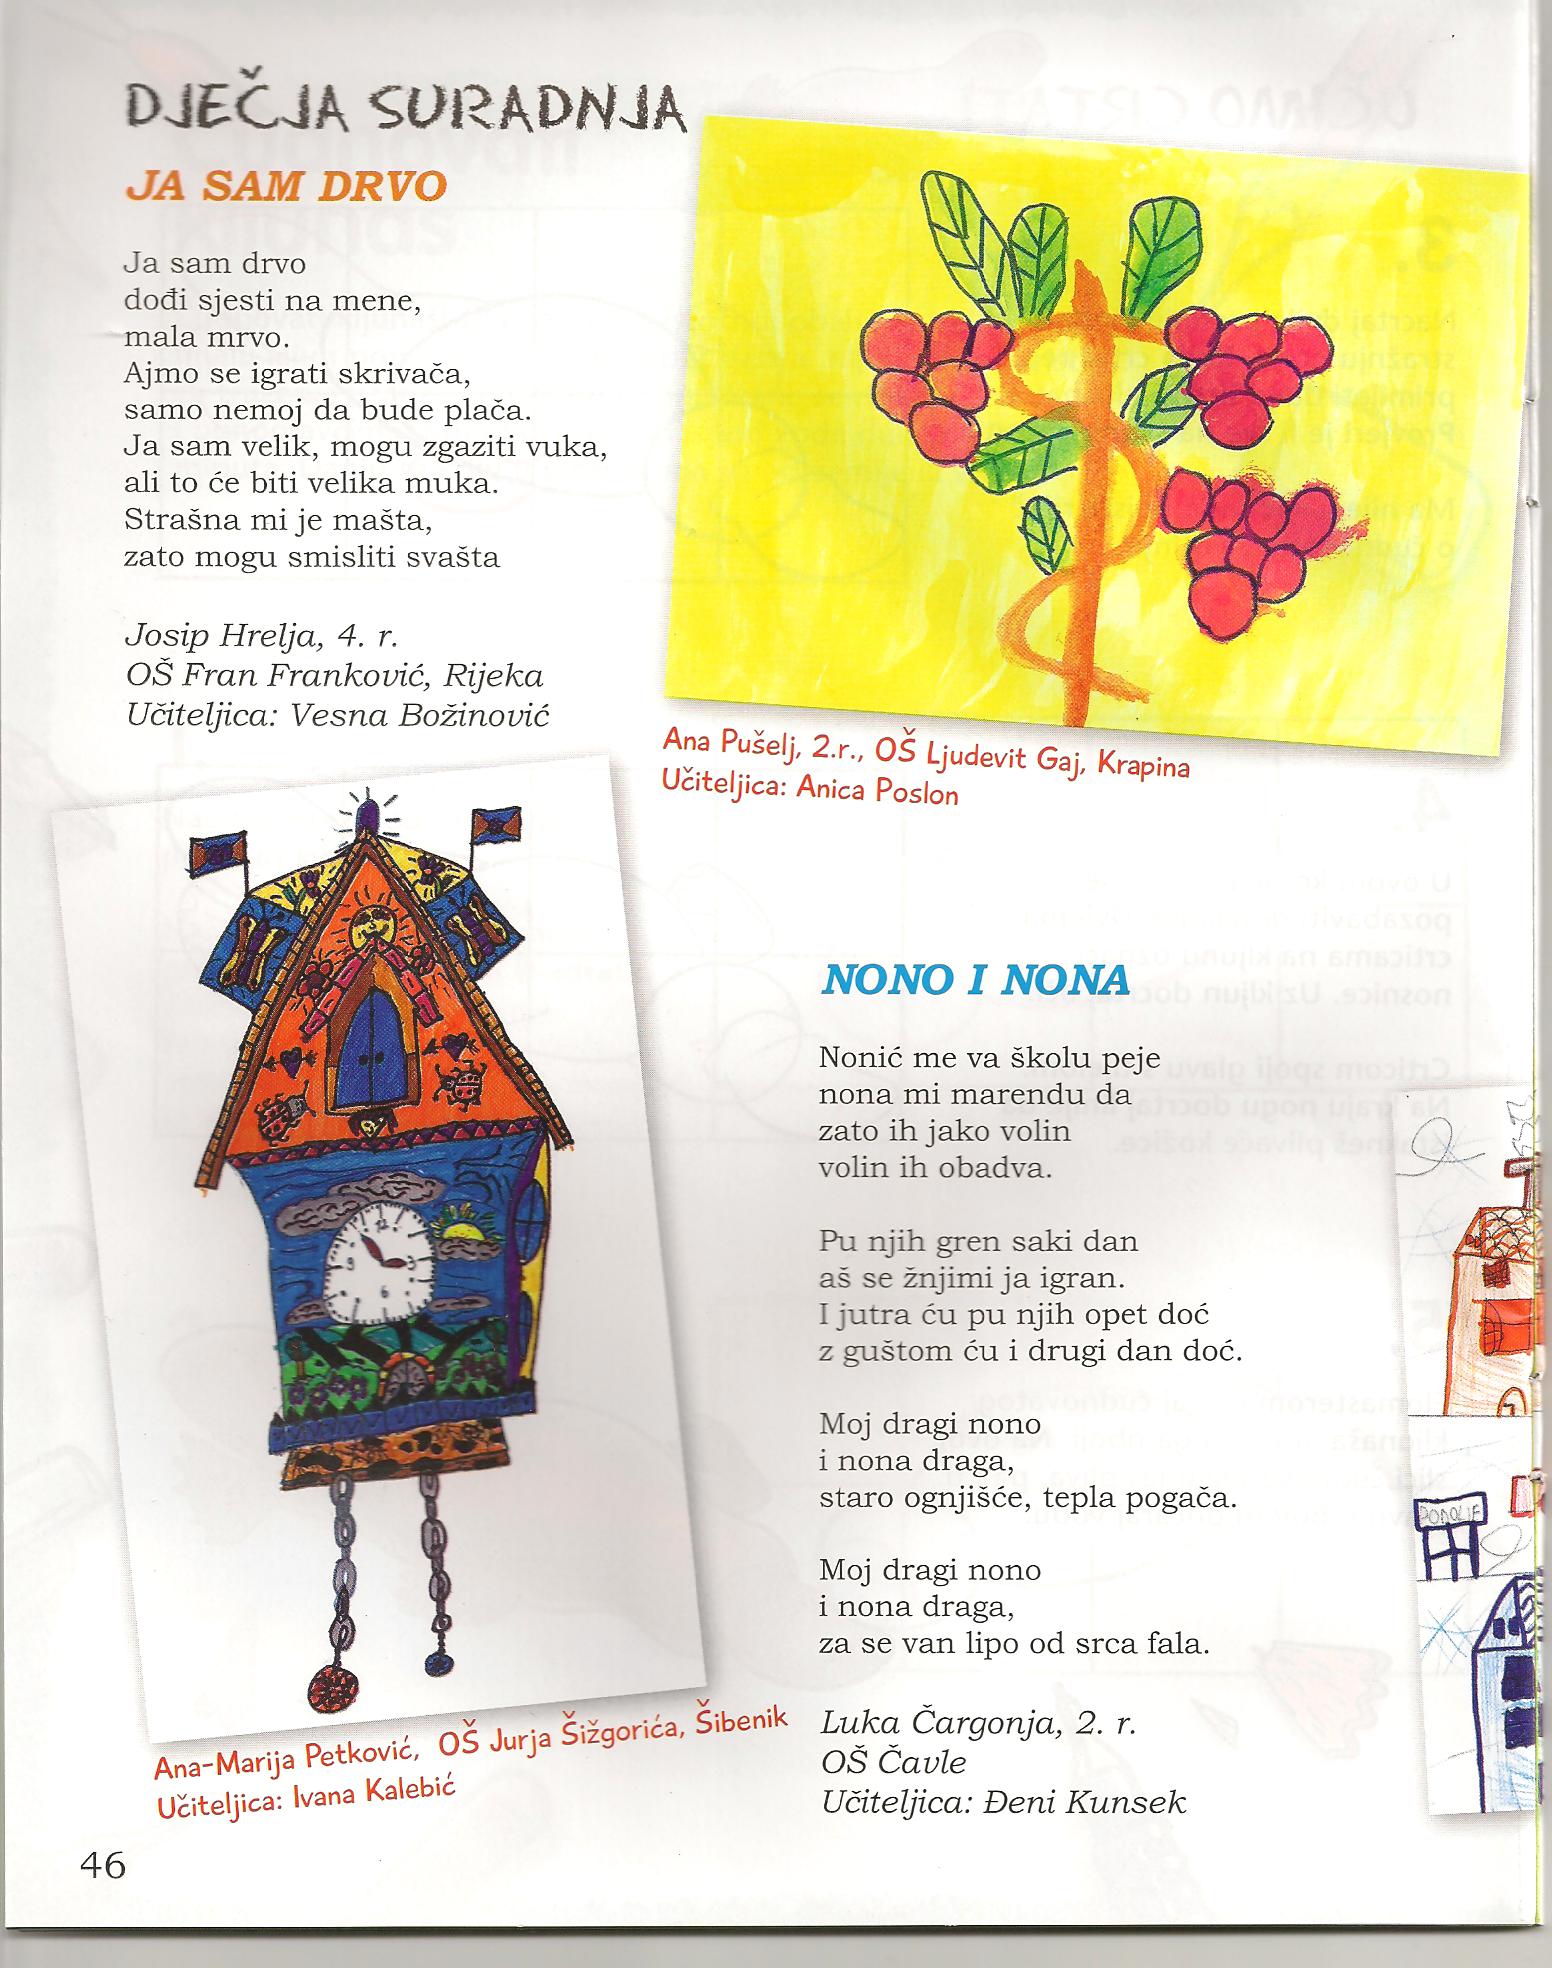 DJEČJA SURADNJA
JA SAM DRVO
Ja sam drvo
dođi sjesti na mene,
mala mrvo.
Ajmo se igrati skrivača,
samo nemoj da bude plača.
Ja sam velik, mogu zgaziti vuka,
ali to će biti velika muka.
Strašna mi je mašta,
zato mogu smisliti svašta
Josip Hrelja, 4. r.
OŠ Fran Franković, Rijeka
Učiteljica: Vesna Božinović
Ana Pušelj, 2.r., OŠ Ljudevit Gaj, Krapina
Učiteljica: Anica Poslon
12
3
6
9
Ana-Marija Petković, OŠ Jurja Šižgorića, Šibenik
Učiteljica: Ivana Kalebić
NONO I NONA
Nonić me va školu peje
nona mi marendu da
zato ih jako volin
volin ih obadva.
Pu njih gren saki dan
aš se žnjimi ja igran.
I jutra ću pu njih opet doć
z guštom ću i drugi dan doć.
Moj dragi nono
i nona draga,
staro ognjišće, tepla pogača.
Moj dragi nono
i nona draga,
za se van lipo od srca fala.
Luka Čargonja, 2. r.
OŠ Čavle
Učiteljica: Đeni Kunsek
46